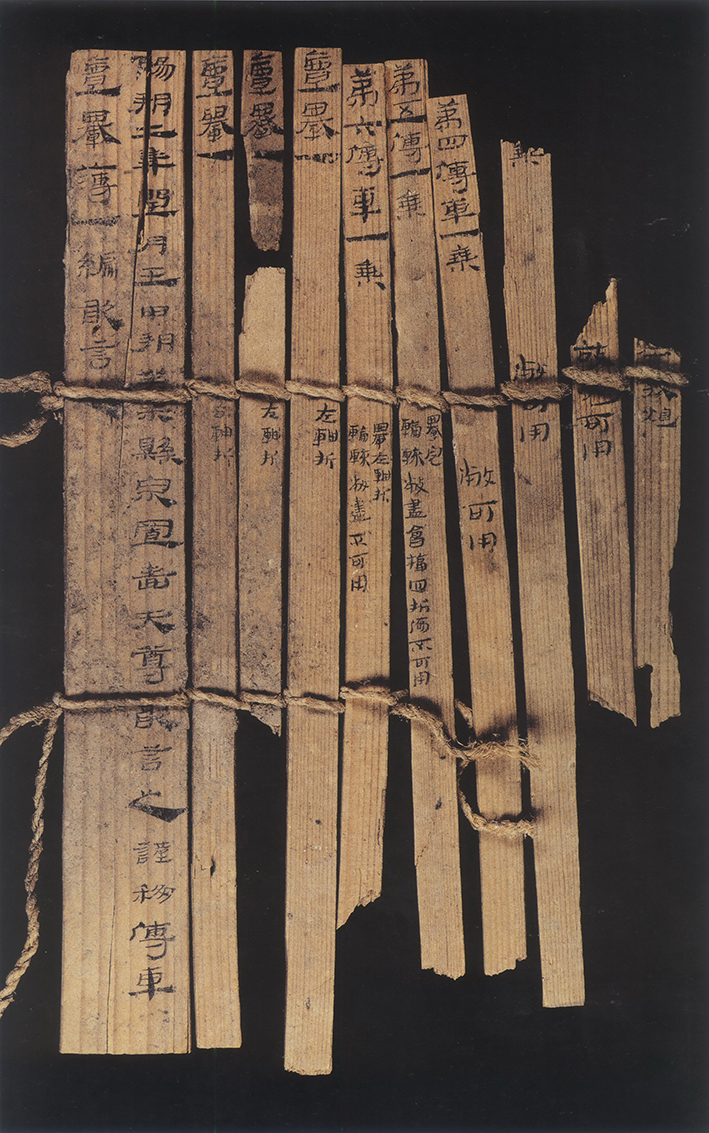 可用
乘 敝可用
第四傳車一乘 敝可用
第五傳車一乘 轝完
輪轑敝盡會楅四折傷不可用
第六傳車一乘 轝左軸折
輪轑敝盡不可用
亶轝一 左軸折
亶轝一 左軸折
亶轝一 右軸折
陽朔二年閏月壬申朔癸未縣泉置嗇夫尊敢言之謹移傳車
亶轝簿一編敢言